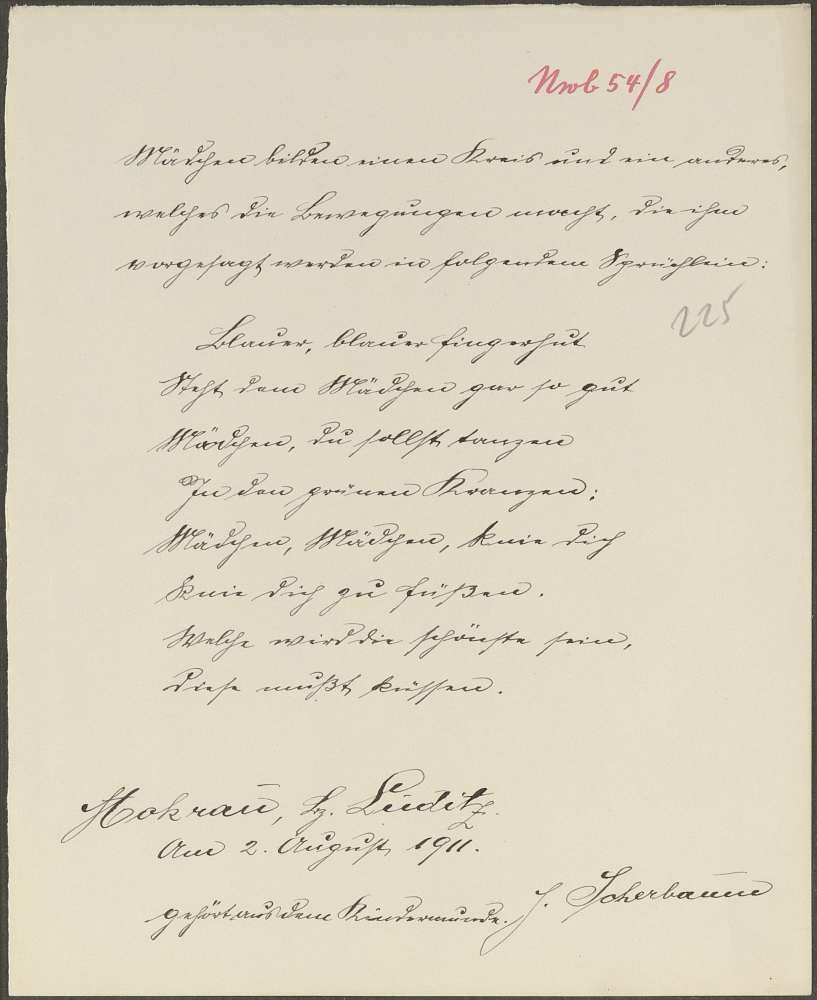 Nwb 54/8
Mädchen bilden einen Kreis und ein anderes,
welches die Bewegungen macht, die ihm
vorgesagt werden in folgendem Sprüchlein:
225
Blauer, blauer Fingerhut
Steht dem Mädchen gar so gut
Mädchen, du sollst tanzen
In den grünen Kranzen;
Mädchen, Mädchen, knie dich
Knie dich zu Füßen.
Welche wird die schönste sein,
diese mußt küssen.
Mokrau, Bz. Luditz.
Am 2. August 1911.
gehört aus dem Kindermunde.
J. Scherbaum